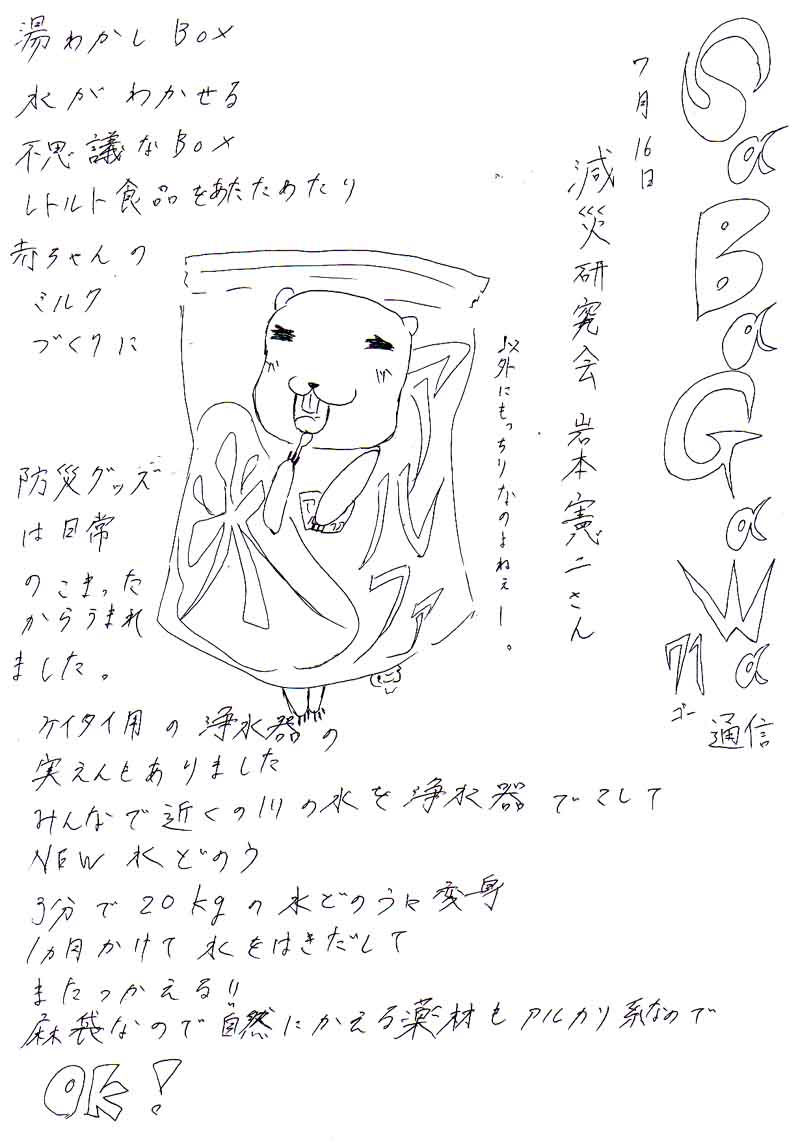 SaBaGaWa
71
ゴー
通信
7月16日
減災研究会 岩本憲二さん
湯わかし Box
水がわかせる
不思議なBox
レトルト食品をあたためたり
赤ちゃんの
ミルク
づくりに
アルファ
米
以外にもっちりなのよねぇー。
防災グッズ
は日常
のこまった
からうまれ
ました。
ケイタイ用の浄水器の
実えんもありました
みんなで近くの川の水を浄水器でこして
NEW 水どのう
3分で20kgの水どのうに変身
1ヵ月かけて水をはきだして
またつかえる!!
麻袋なので自然にかえる薬材もアルカリ系なので
Ok!